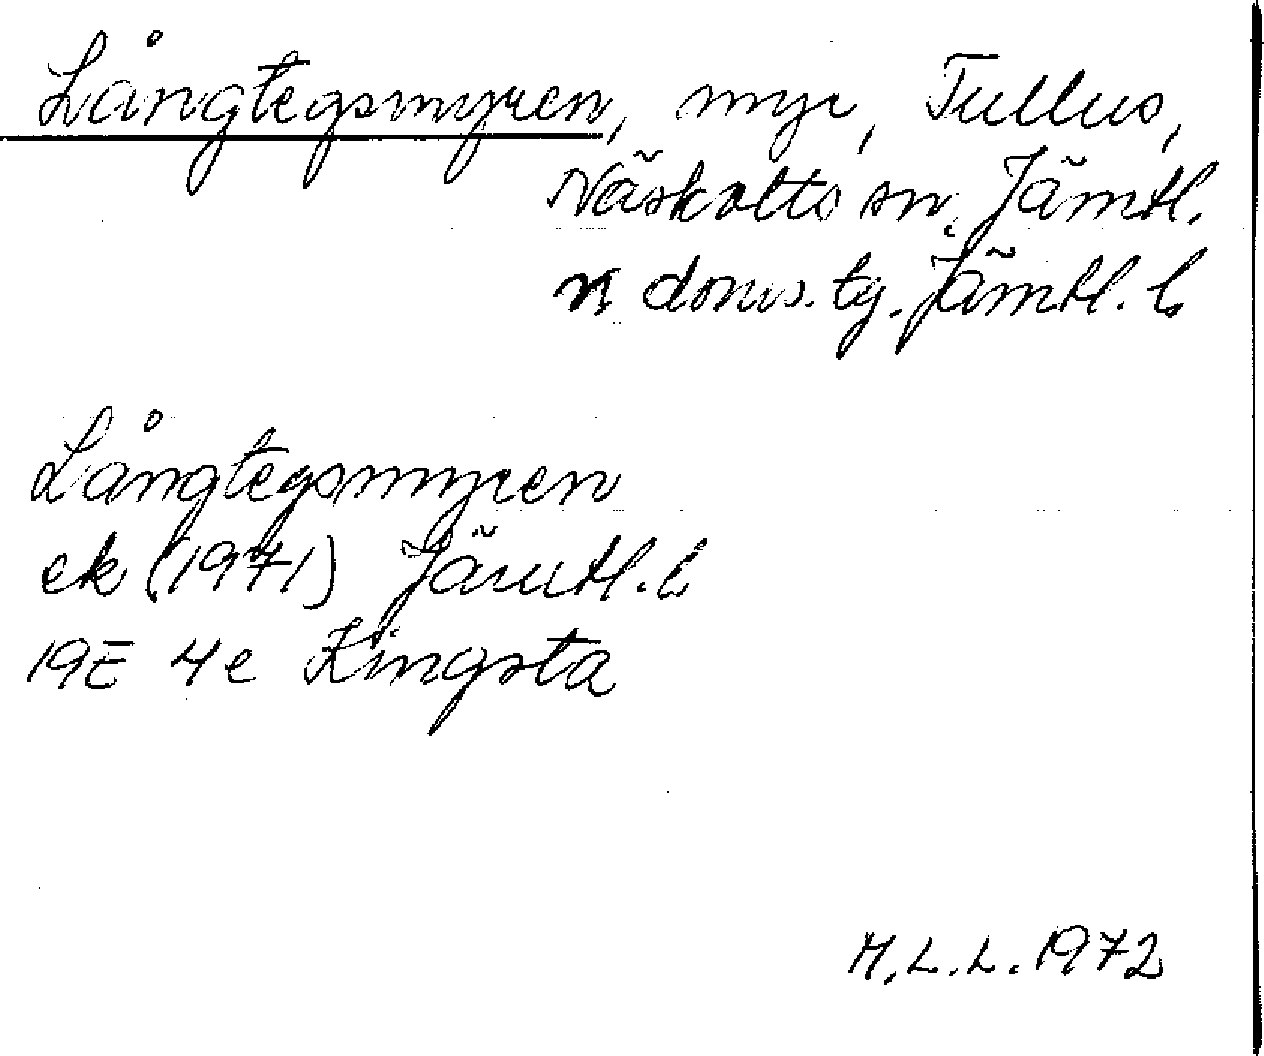 Långtegsmyren, myr, Tullus,
Näskotts sn, Jämtl.
n doms. tg. Jämtl. l
Långtegsmyren
ek (1971) Jämtl. l
19E 4e Kingsta
M.L.L. 1972